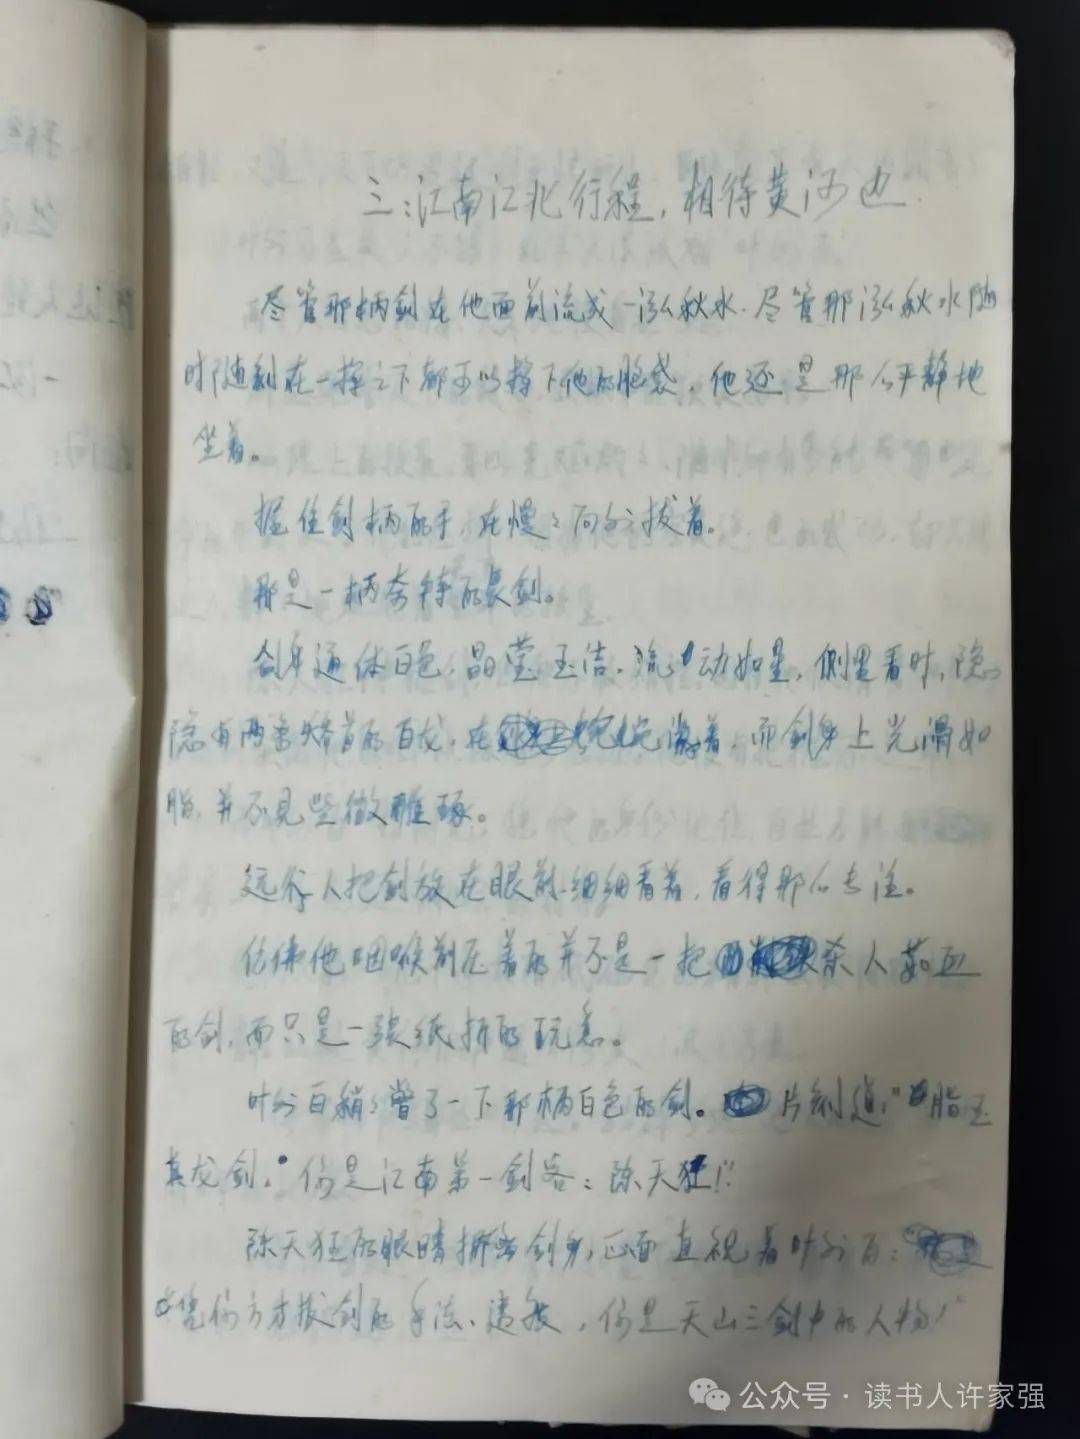 三：江南江北行程，相待黄河边
尽管那柄剑在他面前流成一泓秋水．尽管那泓秋水随
时随刻在一挥之下都可以挥下他的脑袋，他还是那么平静地
坐着。
握住剑柄的手，在慢々向外拔着。
那是一柄奇特的长剑。
剑身通体白色，晶莹玉洁．流动如星，侧里看时，隐
隐有两条昂首的白龙，在蜿蜒着，而剑身上光滑如
脂，并不见些微雕琢。
远行人把剑放在眼前细细看着，看得那么专注。
仿佛他咽喉前压着的并不是一把杀人茹血
的剑，而只是一张纸折的玩意。
叶分百稍々瞥了一下那柄白色的剑。片刻道：“脂玉
真龙剑，你是江南第一剑客：陈天狂！”
陈天狂的眼睛挪出剑身，正面直视着叶分百：
“凭你方才拔剑的手法、速度，你是天山三剑中的人物！”
公众号·读书人许家强